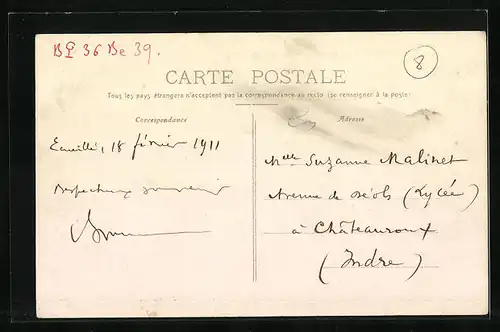 BI 36 Be 39.
8
CARTE POSTALE
Tous les pays étrangers n'acceptent pas la correspondance au recto (se renseigner à la poste)
Correspondance
Adresse
18 février 1911
respectueux souvenir
Melle Suzanne Malinet
Avenue de Déols (Lycée)
à Châteauroux
(Indre)